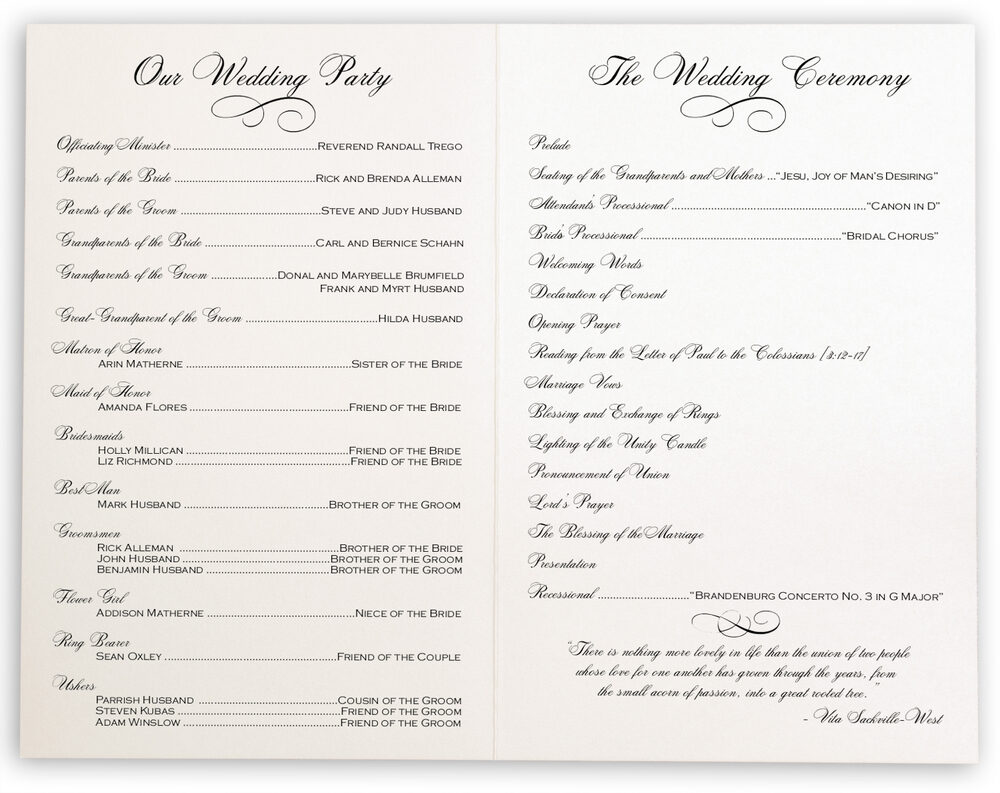 Our Wedding Party
Officiating Minister ............................................REVEREND RANDALL TREGO
Parents of the Bride ...........................................RICK AND BRENDA ALLEMAN
Parents of the Groom ...........................................STEVE AND JUDY HUSBAND
Grandparents of the Bride ..................................CARL AND BERNICE SCHAHN
Grandparents of the Groom ....................DONAL AND MARYBELLE BRUMFIELD
FRANK AND MYRT HUSBAND
Great-Grandparent of the Groom ........................................HILDA HUSBAND
Matron of Honor
ARIN MATHERNE ..................................................SISTER OF THE BRIDE
Maid of Honor
AMANDA FLORES ................................................FRIEND OF THE BRIDE
Bridesmaids
HOLLY MILLICAN ..................................................FRIEND OF THE BRIDE
LIZ RICHMOND .....................................................FRIEND OF THE BRIDE
Best Man
MARK HUSBAND .............................................BROTHER OF THE GROOM
Groomsmen
RICK ALLEMAN ................................................BROTHER OF THE BRIDE
JOHN HUSBAND ..............................................BROTHER OF THE GROOM
BENJAMIN HUSBAND ......................................BROTHER OF THE GROOM
Flower Girl
ADDISON MATHERNE ..............................................NIECE OF THE BRIDE
Ring Bearer
SEAN OXLEY .....................................................FRIEND OF THE COUPLE
Ushers
PARRISH HUSBAND ..........................................COUSIN OF THE GROOM
STEVEN KUBAS ..................................................FRIEND OF THE GROOM
ADAM WINSLOW ................................................FRIEND OF THE GROOM
The Wedding Ceremony
Prelude
Seating of the Grandparents and Mothers ..."JESU, JOY OF MAN'S DESIRING"
Attendants' Processional ............................................................"CANON IN D"
Bride's Processional ..............................................................."BRIDAL CHORUS"
Welcoming Words
Declaration of Consent
Opening Prayer
Reading from the Letter of Paul to the Colossians [3:12-17]
Marriage Vows
Blessing and Exchange of Rings
Lighting of the Unity Candle
Pronouncement of Union
Lord's Prayer
The Blessing of the Marriage
Presentation
Recessional ............................"BRANDENBURG CONCERTO NO. 3 IN G MAJOR"
"There is nothing more lovely in life than the union of two people
whose love for one another has grown through the years, from
the small acorn of passion, into a great rooted tree."
- Vita Sackville-West